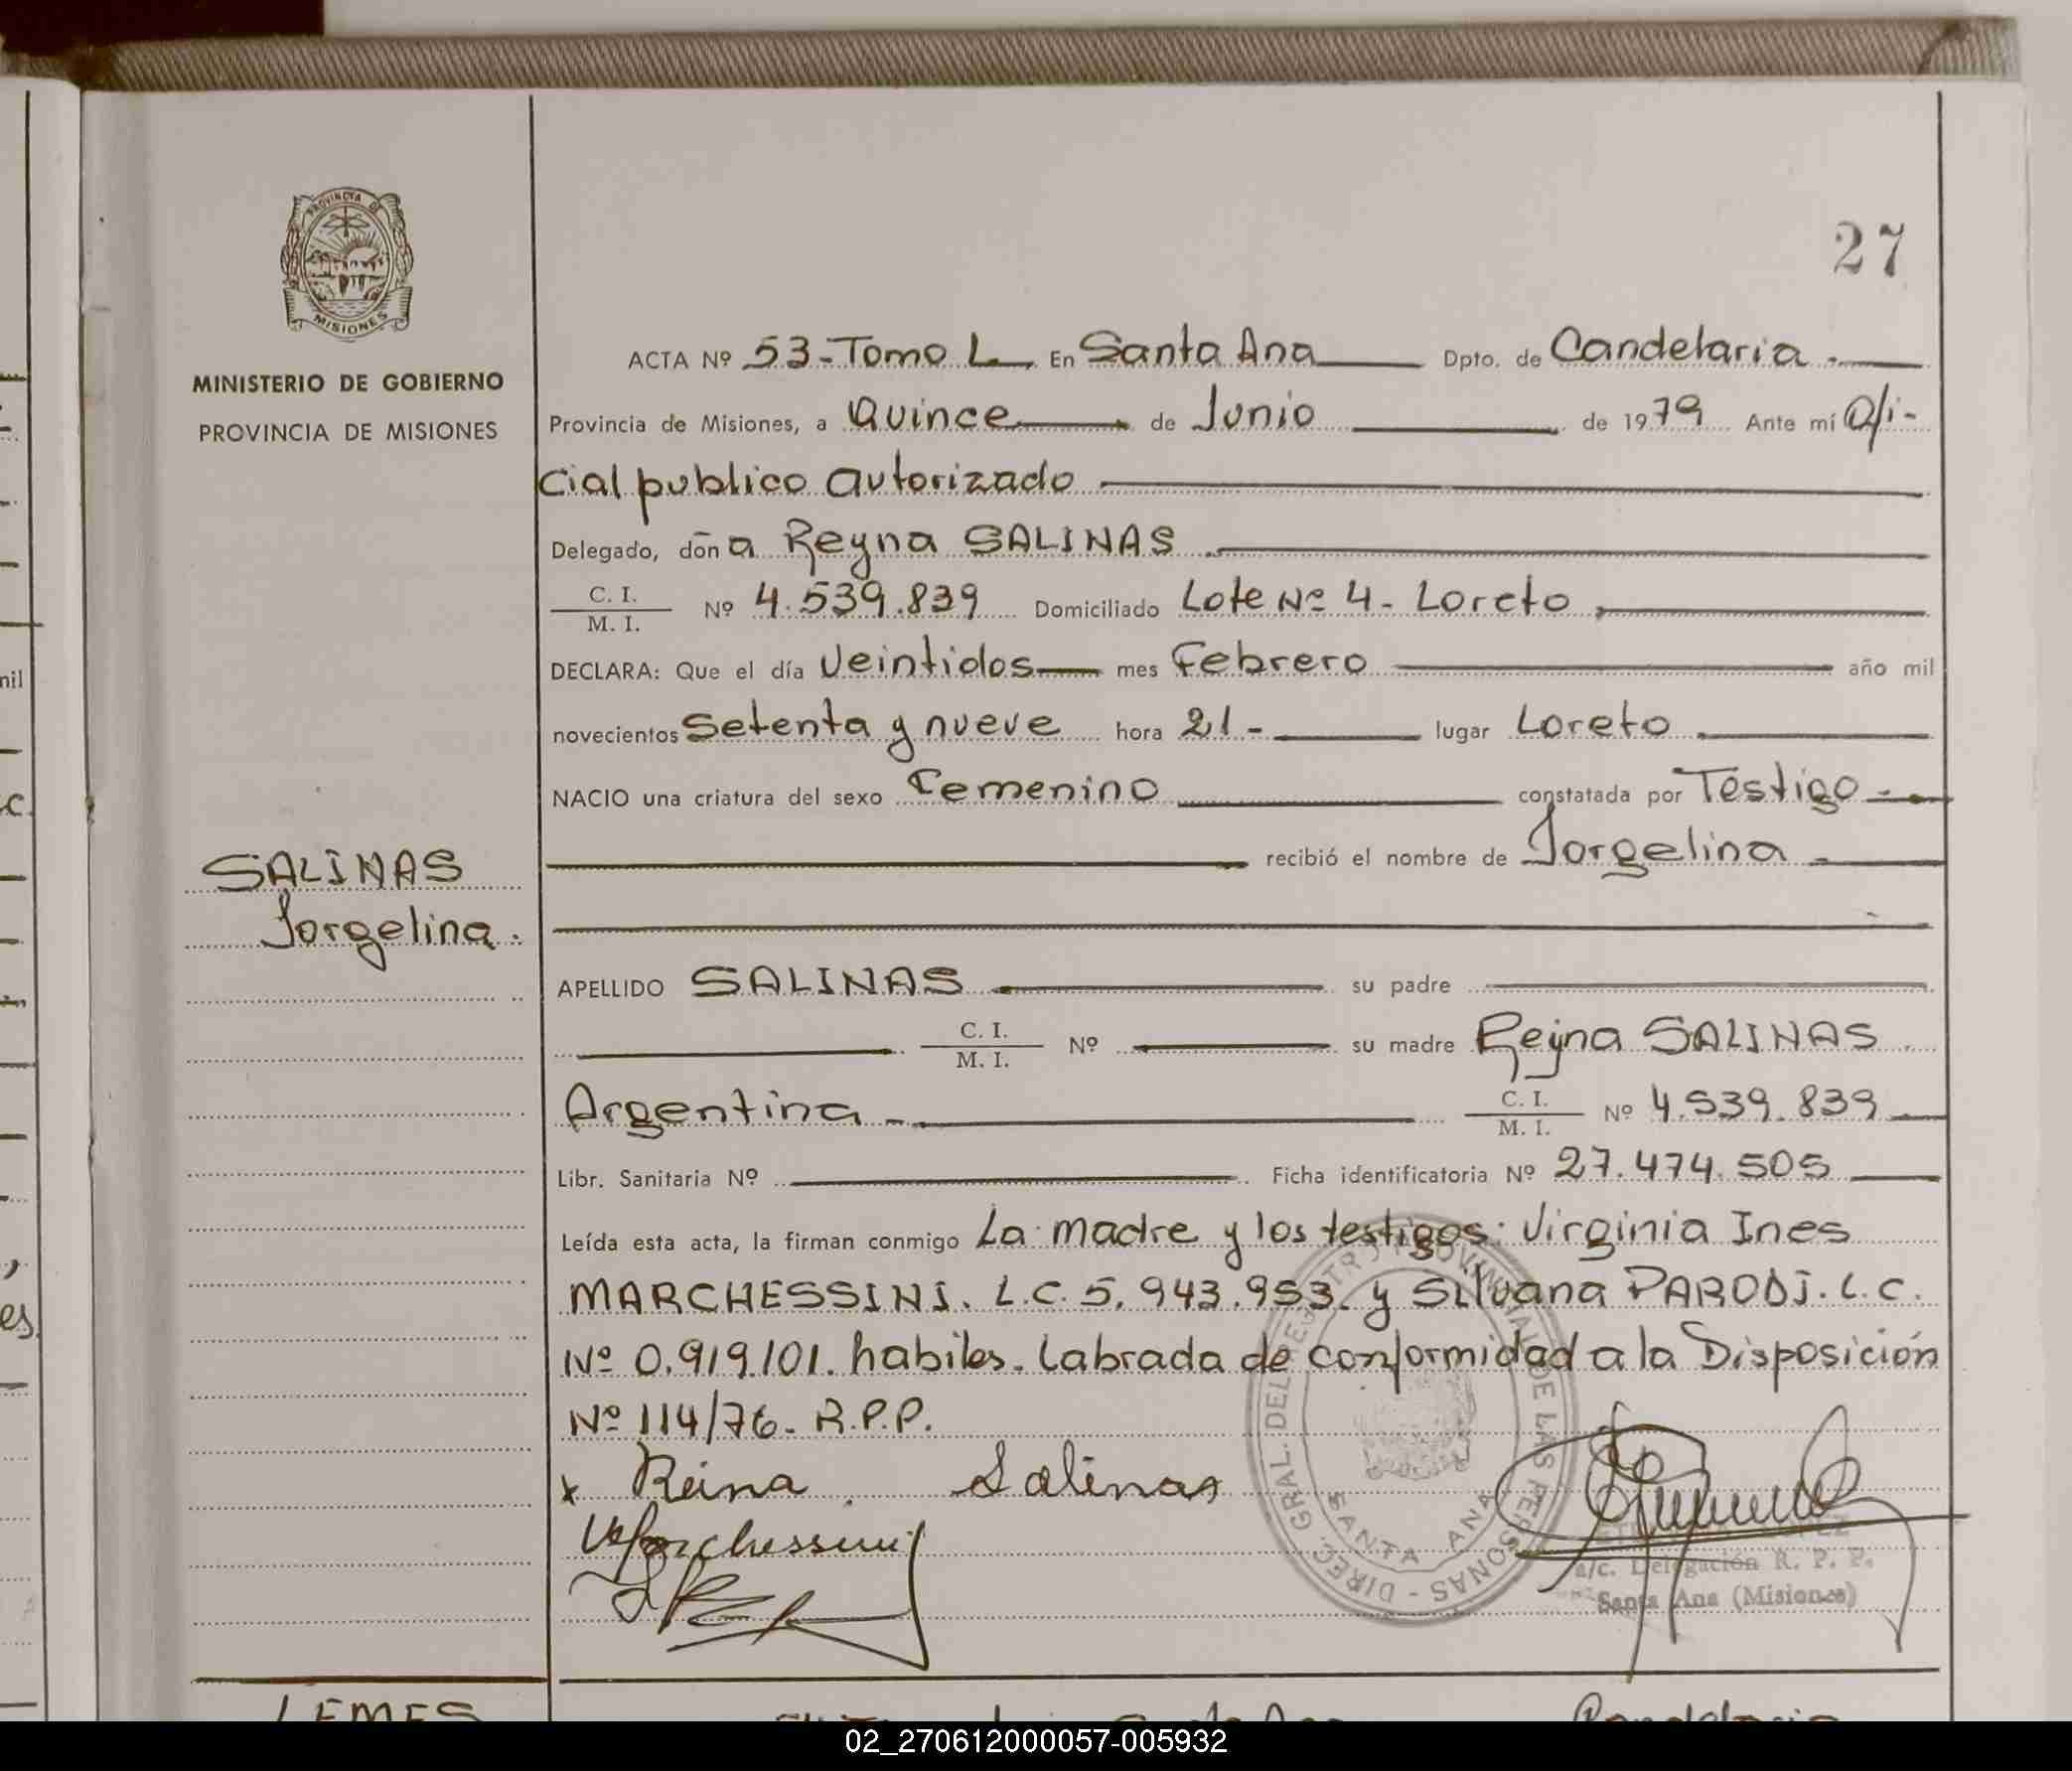 27
PROVINCIA DE
MISIONES
MINISTERIO DE GOBIERNO
PROVINCIA DE MISIONES
SALINAS
Jorgelina.
ACTA Nº 53-Tomo L En Santa Ana Dpto. de Candelaria.
Provincia de Misiones, a Quince de Junio de 1979 Ante mí Ofi-
cial publico autorizado
Delegado, don a Reyna SALINAS
C. I. / M. I. Nº 4.539.839 Domiciliado Lote Nº 4- Loreto,
DECLARA: Que el día Veintidos mes Febrero año mil
novecientos Setenta y nueve hora 21- lugar Loreto
NACIO una criatura del sexo Femenino constatada por Testigo-
recibió el nombre de Jorgelina
APELLIDO SALINAS su padre
C. I. / M. I. Nº su madre Reyna SALINAS
Argentina C. I. / M. I. Nº 4.539.839
Libr. Sanitaria Nº Ficha identificatoria Nº 27.474.505
Leída esta acta, la firman conmigo La madre y los testigos: Virginia Ines
MARCHESSINI. L.C. 5.943.953. y Silvana PARODI. L.C.
Nº 0.919.101. habiles. Labrada de conformidad a la Disposición
Nº 114/76- R.P.P.
x Reina Salinas
VMarchessini
DIREC. GRAL. DEL REGISTRO PROVINCIAL DE LAS PERSONAS -
SANTA ANA
a/c. Delegación R. P. P.
Santa Ana (Misiones)
LEMES
02_270612000057-005932